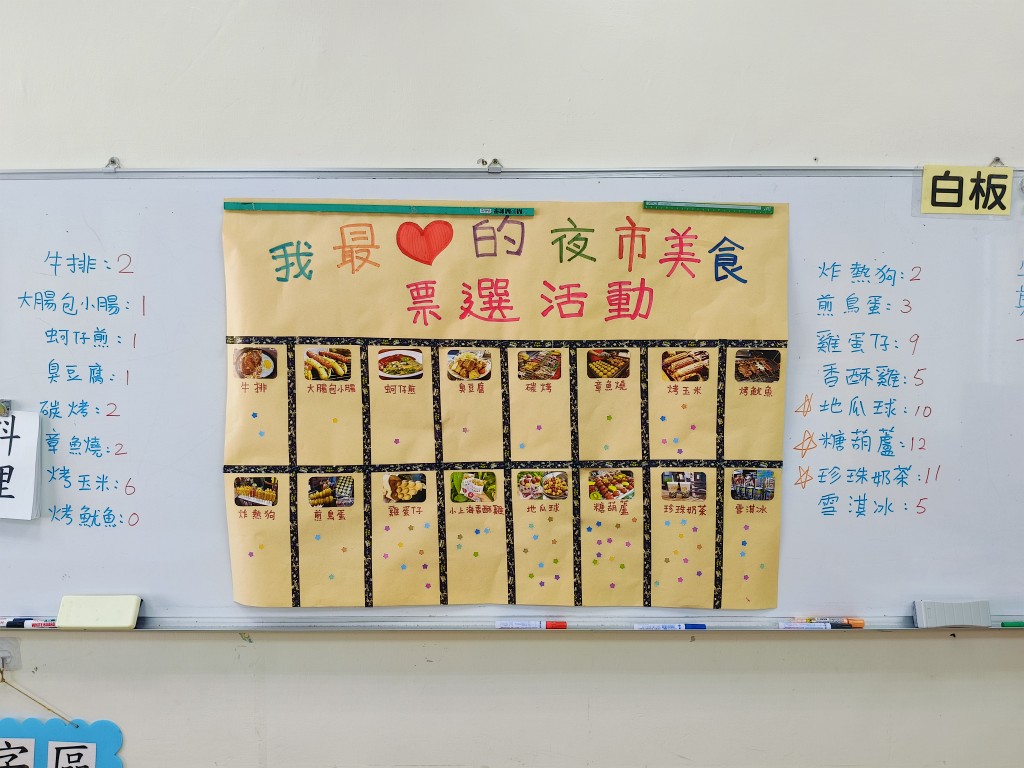 白板
我最❤的夜市美食
票選活動
牛排:2
大腸包小腸:1
蚵仔煎:1
臭豆腐:1
碳烤:2
章魚燒:2
烤玉米:6
烤魷魚:0
牛排
大腸包小腸
蚵仔煎
臭豆腐
碳烤
章魚燒
烤玉米
烤魷魚
炸熱狗
煎鳥蛋
雞蛋仔
小上海香酥雞
地瓜球
糖葫蘆
珍珠奶茶
雪淇冰
炸熱狗:2
煎鳥蛋:3
雞蛋仔:9
香酥雞:5
☆地瓜球:10
☆糖葫蘆:12
☆珍珠奶茶:11
雪淇冰:5
料
理
字區